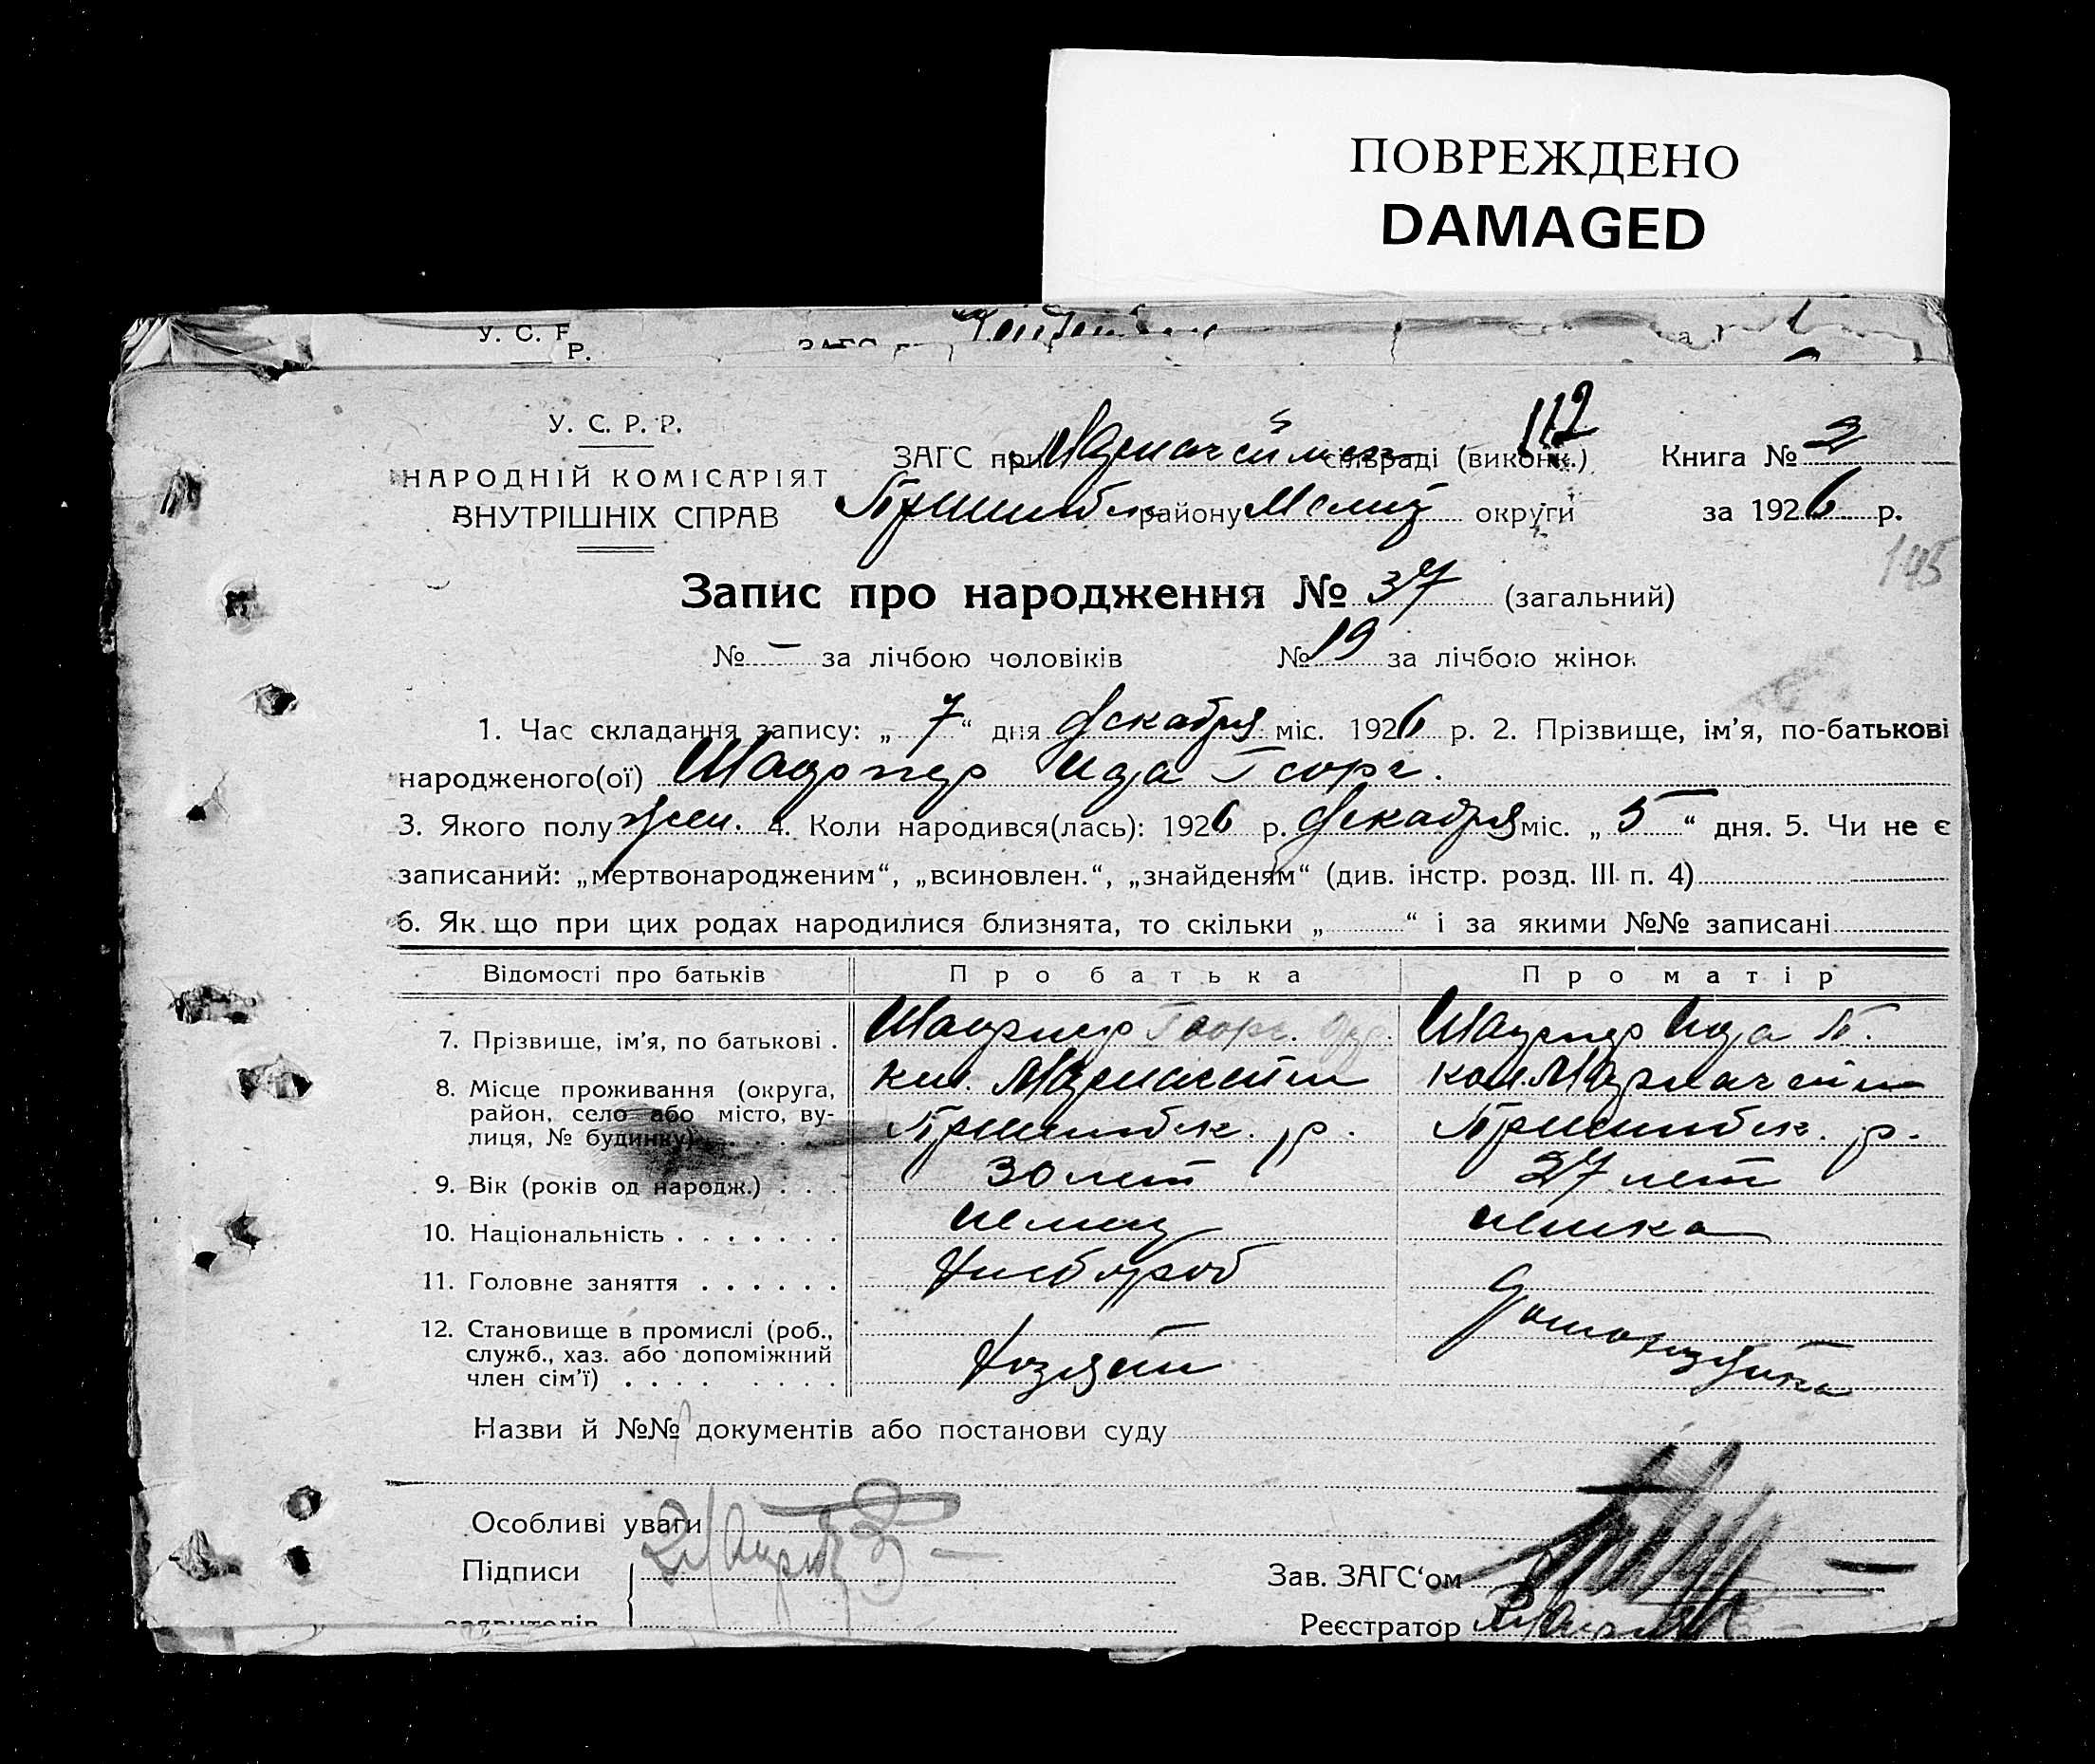 ПОВРЕЖДЕНО
DAMAGED
У. С. Р.
У. С. Р. Р.
НАРОДНІЙ КОМІСАРІЯТ
ВНУТРІШНІХ СПРАВ
112
ЗАГС при сільраді (виконк.) Книга № 2
Пришибск району Мелит округи за 1926 р.
105
Запис про народження № 37 (загальний)
№ – за лічбою чоловіків № 19 за лічбою жінок
1. Час складання запису: „ 7 “ дня декабря міс. 1926 р. 2. Прізвище, ім'я, по-батькові
народженого(ої) Ида Георг.
3. Якого полу жен. 4. Коли народився(лась): 1926 р. декабря міс. „ 5 “ дня. 5. Чи не є
записаний: „мертвонародженим“, „всиновлен.“, „знайденям“ (див. інстр. розд. III п. 4)
6. Як що при цих родах народилися близнята, то скільки „ “ і за якими №№ записані
Відомості про батьків Про батька Про матір
7. Прізвище, ім'я, по батькові . Георг. Ида П.
8. Місце проживання (округа, кол. кол.
район, село або місто, ву- Пришибск. р. Пришибск. р.
лиця, № будинку)
9. Вік (років од народж.) . . . 30 лет 27 лет
10. Національність . . . . . . . немец немка
11. Головне заняття . . . . . . Хлебороб
12. Становище в промислі (роб., домохозяйка
служб., хаз. або допоміжний Хозяин
член сім'ї) . . . . . . . .
Назви й №№ документів або постанови суду
Особливі уваги
Підписи Зав. ЗАГС‘ом
заявителів Реєстратор